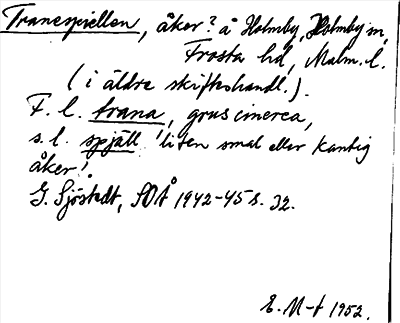 Tranespiellen, åker? å Holmby, Holmby sn,
Frosta hd, Malm. l.
(i äldre skifteshandl.).
F. l. trana, grus cinerea,
s. l. spjäll 'liten smal eller kantig
åker'.
G. Sjöstedt, SOÅ 1942-45 s. 32.
E. M-t 1952.